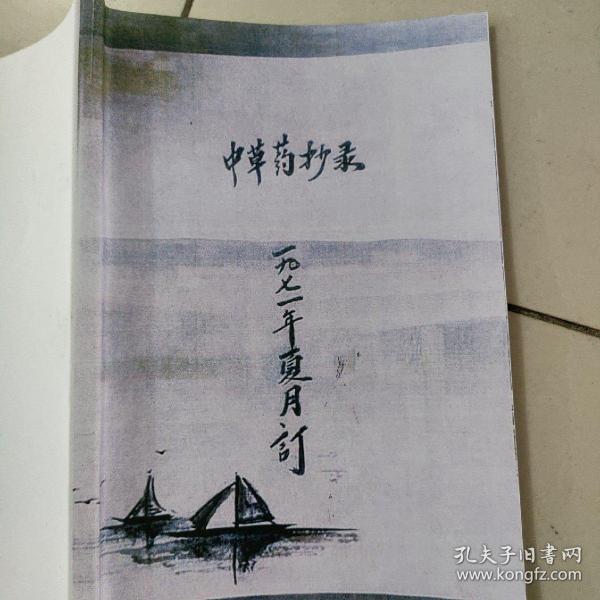 中草药抄录
一九七一年夏月订
孔夫子旧书网
www.kongfz.com